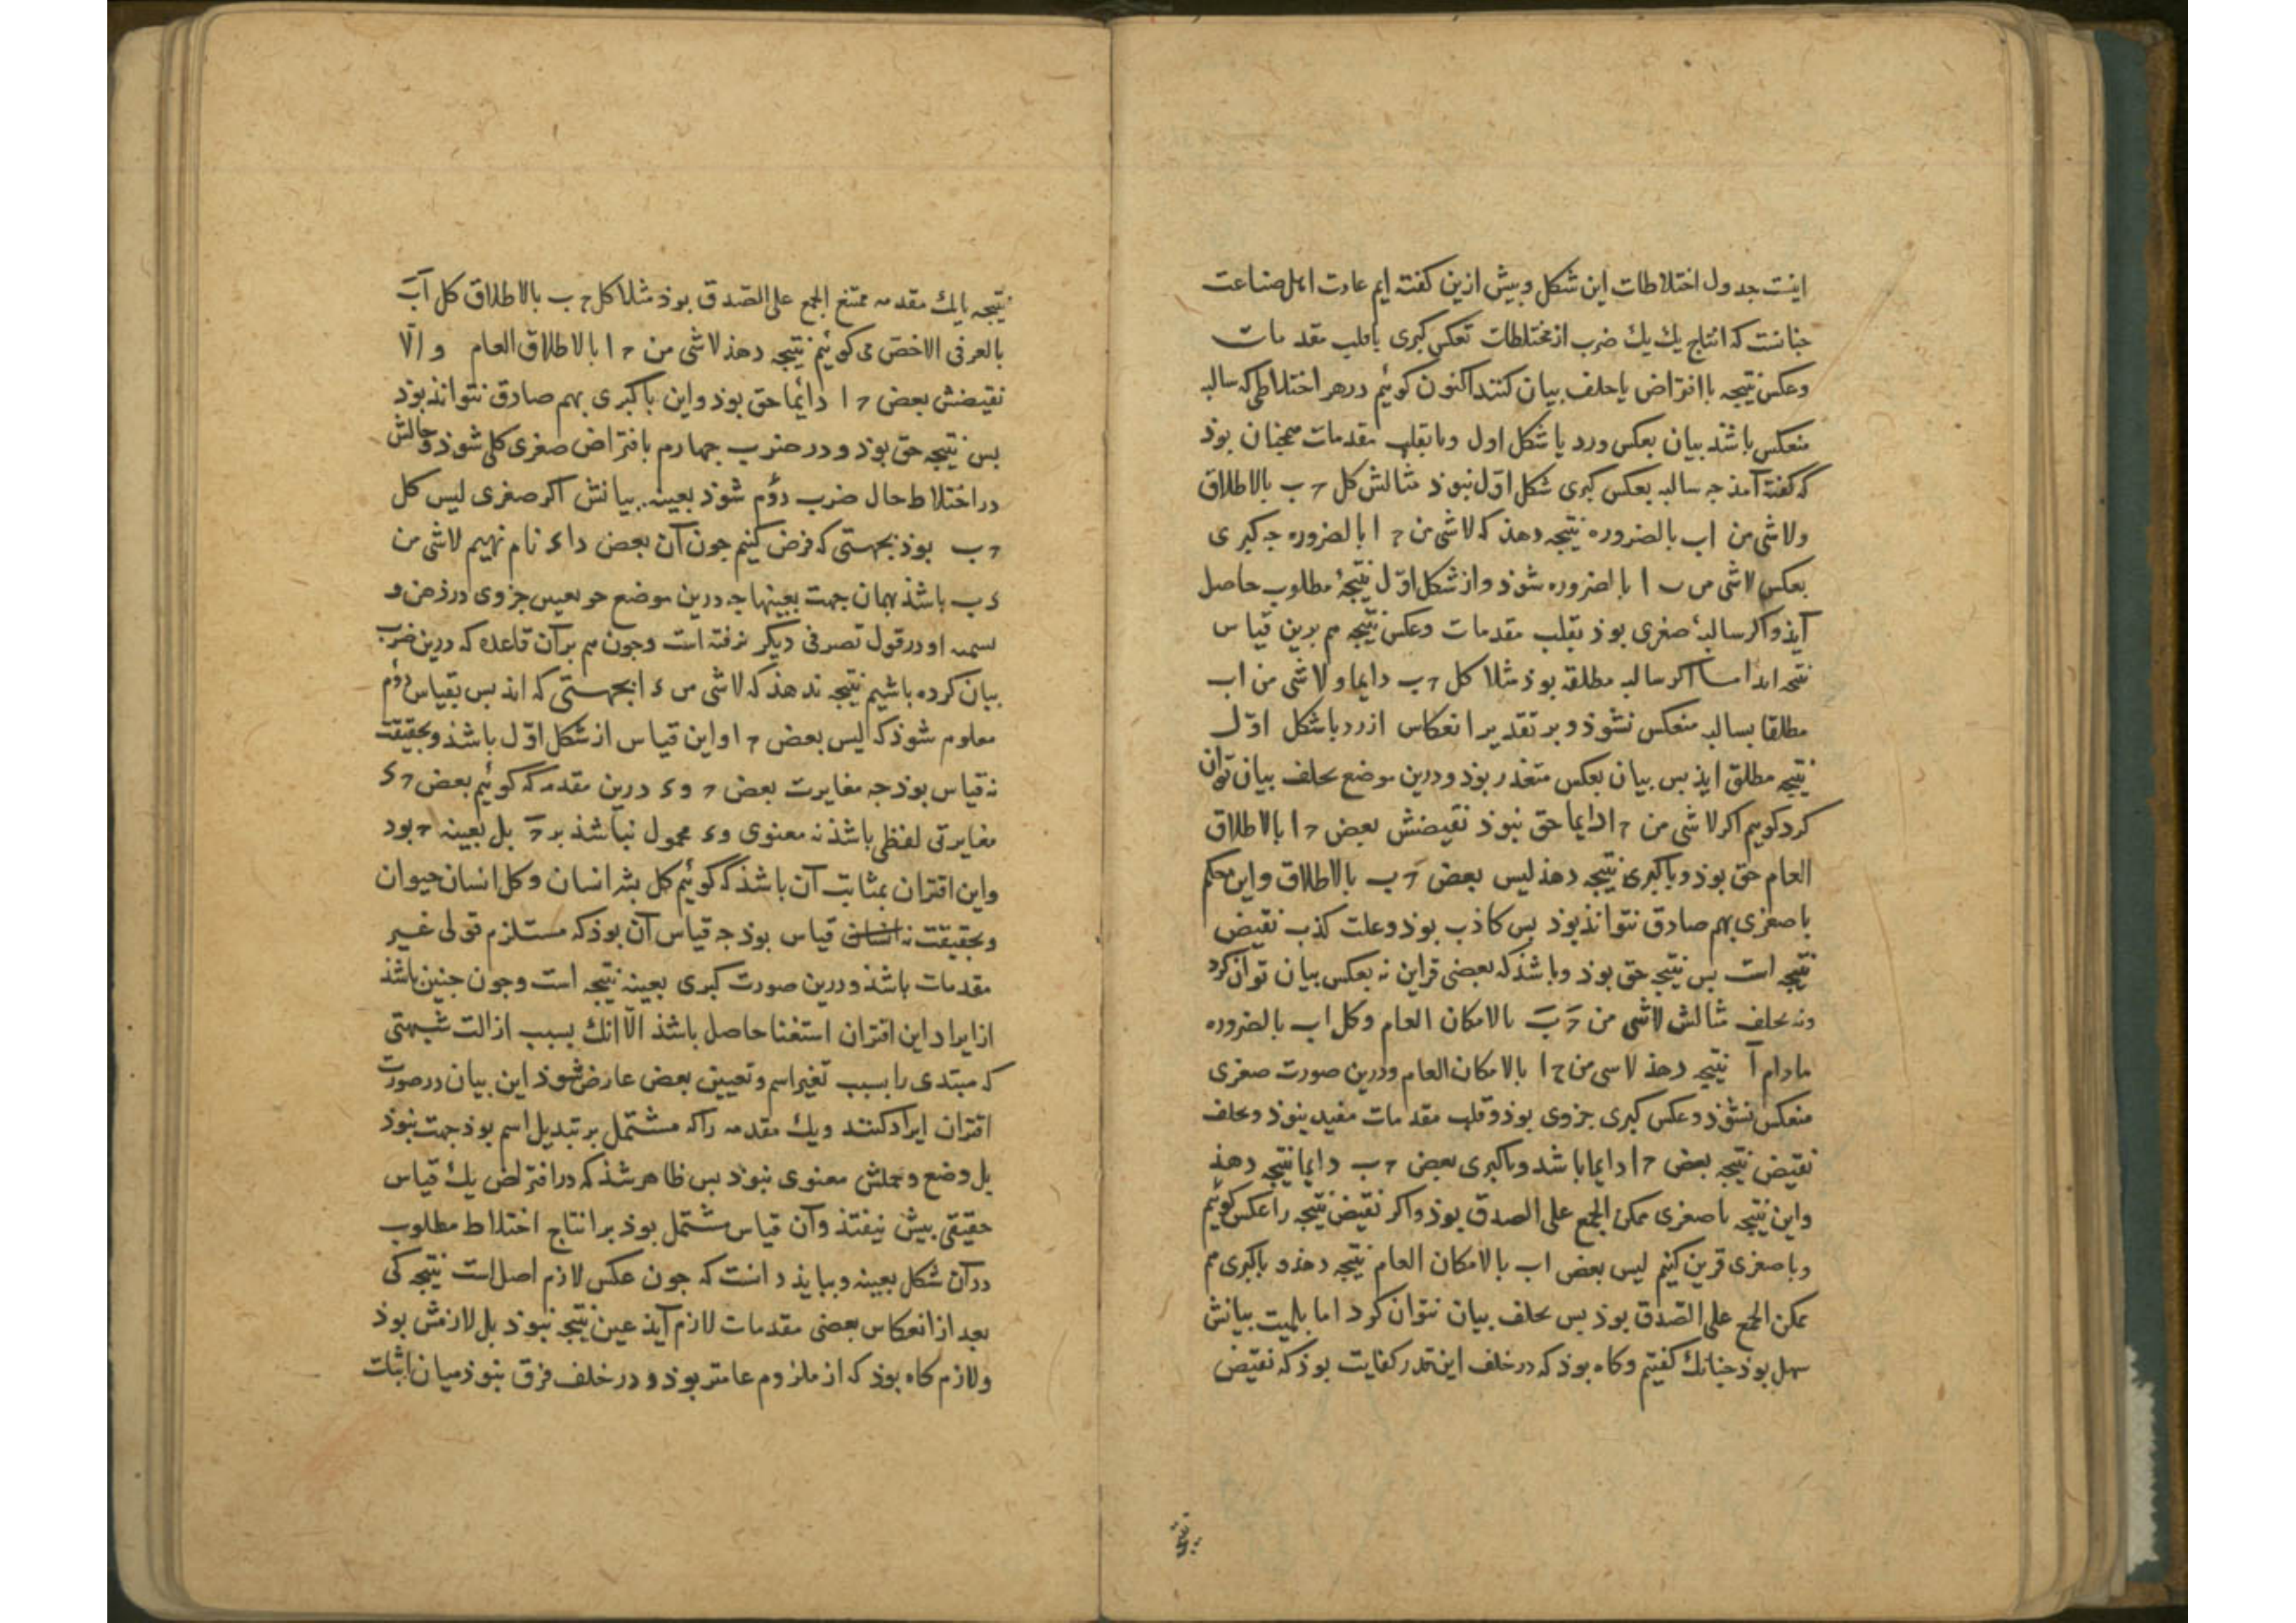 اینست جدول اختلاطات این شکل و بیش ازین کفته ایم عادت اهل صناعت
جنانست که انتاج یك یك ضرب از مختلطات بعکس کبری یا قلب مقدمات
وعکس نتیجه یا افتراض یا خلف بیان کنند اکنون کوئیم درهر اختلاطی که سالبه
منعکس باشد بیان بعکس ورد یا شکل اول ویا بقلب مقدمات همجنان بوذ
که کفته آمذ جه سالبه بعکس کبری شکل اول نبوذ مثالش کل ح ب بالاطلاق
ولاشی من اب بالضروره نتیجه دهذ که لاشی من ح ا بالضروره جه کبری
بعکس لاشی من ب ا بالضروره شوذ واز شکل اوّل نتیجهٔ مطلوب حاصل
آیذ واکر سالبهٔ صغری بوذ بقلب مقدمات وعکس نتیجه هم برین قیاس
نتیجه اما اکر سالبه مطلقه بوذ مثلا کل ح ب دایما ولاشی من اب
مطلقا بسالبه منعکس نشوذ وبر تقدیر انعکاس ازرد باشکل اوّل
نتیجه مطلق ایذ بس بیان بعکس متعذر بوذ ودرین موضع بخلف بیان توان
کرد کوییم اکر لاشی من ح ا دایما حق نبوذ نقیضش بعض ح ا بالاطلاق
العام حق بوذ وباکبری نتیجه دهذ لیس بعض ح ب بالاطلاق واین حکم
با صغری بهم صادق نتواند بوذ بس کاذب بوذ وعلت کذب نقیض
نتیجه است بس نتیجه حق بوذ وباشذ که بعضی قراین نه بعکس بیان توان کرد
ونه بخلف مثالش لاشی من ح ب بالامکان العام وکل اب بالضروره
مادام آ نتیجه دهذ لاسی من ح ا بالامکان العام ودرین صورت صغری
منعکس نشوذ وعکس کبری جزوی بوذ وقلب مقدمات مفید نبوذ وبخلف
نقیض نتیجه بعض ح ا دایما باشد وباکبری بعض ح ب دایما نتیجه دهذ
واین نتیجه با صغری ممکن الجمع علی الصدق بوذ واکر نقیض نتیجه را عکس کوئیم
وبا صغری قرین کنیم لیس بعض اب بالامکان العام نتیجه دهذ و باکبری هم
ممکن الجمع علی الصّدق بوذ بس بخلف بیان نتوان کرد اما بلمیت بیانش
سهل بوذ جنانك کفتیم وکاه بوذ که درخلف این قدر کفایت بوذ که نقیض
نتیجه
نتیجه بایك مقدمه ممتنع الجمع علی الصّدق بوذ مثلا کل ح ب بالاطلاق کل آب
بالعرفی الاخصّ می کوئیم نتیجه دهذ لاشی من ح ا بالاطلاق العام و الّا
نقیضش بعض ح ا دایٔما حق بوذ واین با کبری بهم صادق نتواند بوذ
بس نتیجه حق بوذ و در ضرب جهارم بافتراض صغری کلی شوذ وحالش
در اختلاط حال ضرب دوٌم شوذ بعینه بیانش اکر صغری لیس کل
ح ب بوذ بجهتی که فرض کنیم جون آن بعض داء نام نهیم لاشی من
ء ب باشذ بهمان جهت بعینها جه درین موضع جز تعیین جزوی درذهن و
تسمیه او درقول تصرفی دیکر نرفته است وجون هم برآن قاعده که درین ضرب
بیان کرده باشیم نتیجه ندهذ که لاشی من ء ا بجهتی که ایذ بس بقیاس دوٌم
معلوم شوذ که لیس بعض ح ا واین قیاس از شکل اوّل باشذ وبحقیقت
نه قیاس بوذ جه مغایرت بعض ح وء درین مقدمه که کوئیم بعض ح ء
مغایرتی لفظی باشذ نه معنوی وء محمول نباشذ بر ح بل بعینه ح بود
واین اقتران بمثابت آن باشذ که کوئیم کل بشر انسان وکل انسان حیوان
وبحقیقت نه انسان قیاس بوذ جه قیاس آن بوذ که مستلزم قولی غیر
مقدمات باشذ ودرین صورت کبری بعینه نتیجه است وجون جنین باشذ
از ایراد این اقتران استغنا حاصل باشذ الّا انك بسبب ازالت شبهتی
که مبتدی را بسبب تغیر اسم وتعیین بعض عارض شوذ این بیان درصورت
اقتران ایراد کنند ویك مقدمه را که مشتمل بر تبدیل اسم بوذ جهت نبوذ
بل وضع وحملش معنوی نبوذ بس ظاهر شذ که درافتراض یك قیاس
حقیقی بیش نیفتذ وآن قیاس مشتمل بوذ بر انتاج اختلاط مطلوب
درآن شکل بعینه وببایذ دانست که جون عکس لازم اصل است نتیجه کی
بعد از انعکاس بعضی مقدمات لازم آیذ عین نتیجه نبوذ بل لازمش بوذ
ولازم کاه بوذ که از ملزوم عامتر بوذ و درخلف فرق نبوذ میان اثبات